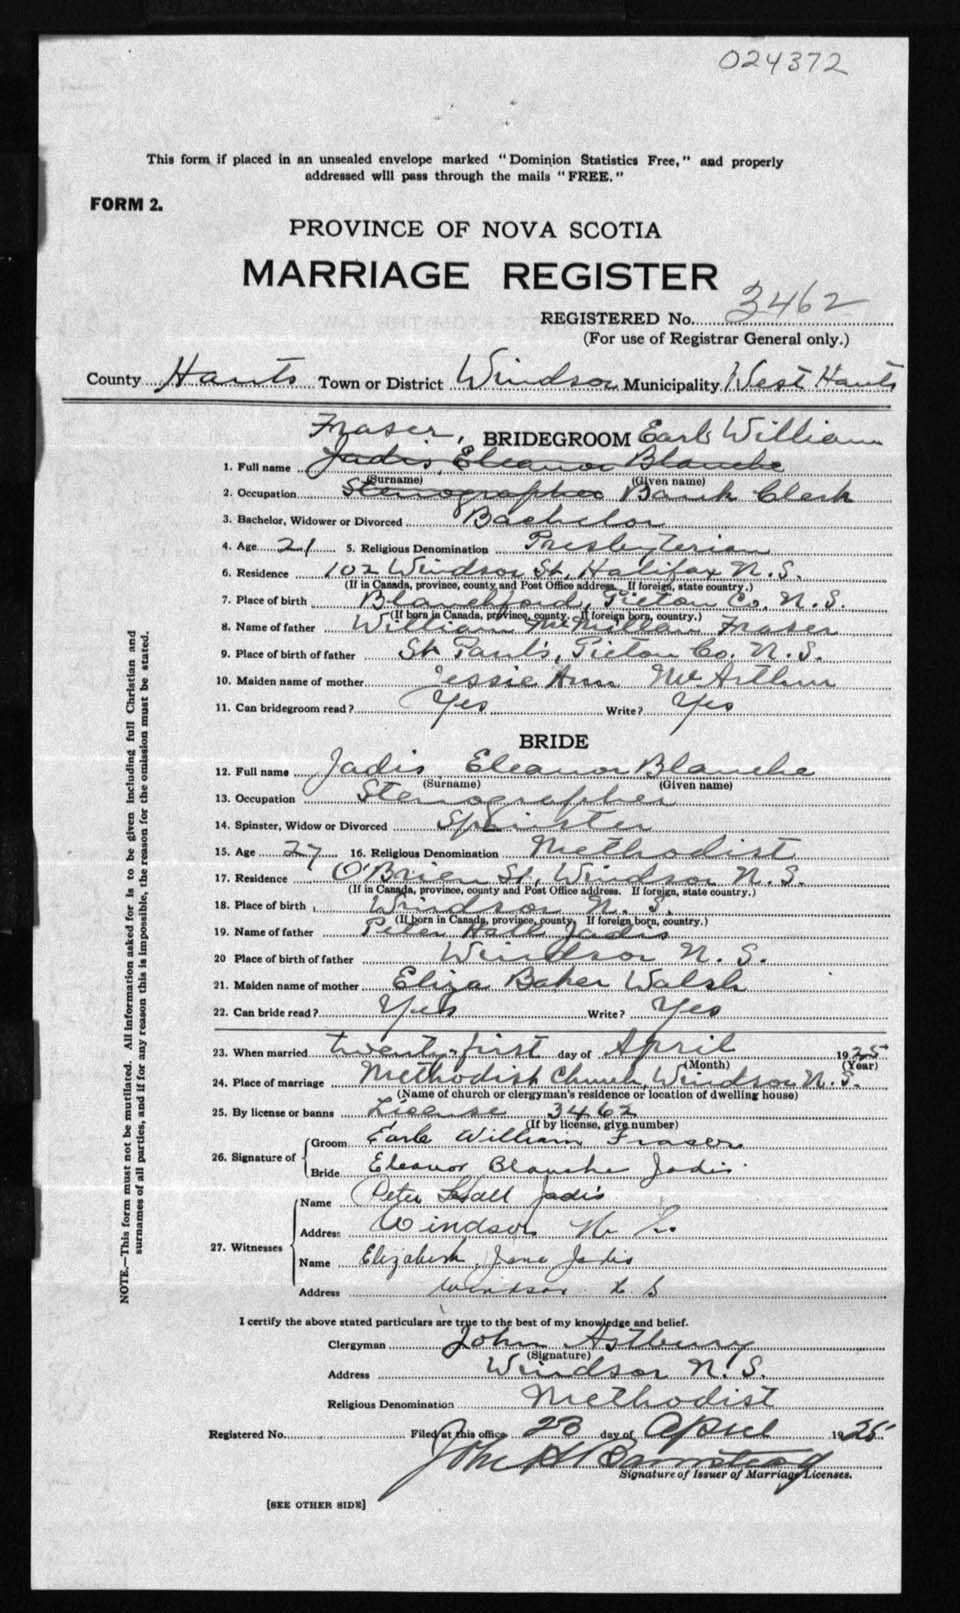 024372
This form if placed in an unsealed envelope marked "Dominion Statistics Free," and properly
addressed will pass through the mails "FREE."
FORM 2.
PROVINCE OF NOVA SCOTIA
MARRIAGE REGISTER
REGISTERED No. 3462
(For use of Registrar General only.)
County Hants Town or District Windsor Municipality West Hants
Fraser, BRIDEGROOM Earle William
1. Full name Jadis, Eleanor Blanche
(Surname) (Given name)
2. Occupation Stenographer Bank Clerk
3. Bachelor, Widower or Divorced Bachelor
4. Age 21 5. Religious Denomination Presbyterian
6. Residence 102 Windsor St, Halifax N.S.
(If in Canada, province, county and Post Office address. If foreign, state country.)
7. Place of birth Blanchford, Pictou Co. N.S.
(If born in Canada, province, county. If foreign born, country.)
8. Name of father William McMillan Fraser
9. Place of birth of father St Paul's, Pictou Co. N.S.
10. Maiden name of mother Jessie Ann McArthur
11. Can bridegroom read? Yes Write? Yes
BRIDE
12. Full name Jadis Eleanor Blanche
(Surname) (Given name)
13. Occupation Stenographer
14. Spinster, Widow or Divorced Spinster
15. Age 27 16. Religious Denomination Methodist
17. Residence O'Brien St, Windsor N.S.
(If in Canada, province, county and Post Office address. If foreign, state country.)
18. Place of birth Windsor N.S.
(If born in Canada, province, county. If foreign born, country.)
19. Name of father Peter Hall Jadis
20 Place of birth of father Windsor N.S.
21. Maiden name of mother Eliza Baker Walsh
22. Can bride read? Yes Write? Yes
23. When married twenty-first day of April 1925
(Month) (Year)
24. Place of marriage Methodist Church, Windsor N.S.
(Name of church or clergyman's residence or location of dwelling house)
25. By license or banns License 3462
(If by license, give number)
26. Signature of Groom Earle William Fraser
Bride Eleanor Blanche Jadis
27. Witnesses Name Peter Hall Jadis
Address Windsor N.S.
Name Elizabeth Jane Jadis
Address Windsor N.S
I certify the above stated particulars are true to the best of my knowledge and belief.
Clergyman John Astbury
(Signature)
Address Windsor N.S.
Religious Denomination Methodist
Registered No. Filed at this office 23 day of April 1925
John H
Signature of Issuer of Marriage Licenses.
[SEE OTHER SIDE]
NOTE.—This form must not be mutilated. All information asked for is to be given including full Christian and
surnames of all parties, and if for any reason this is impossible, the reason for the omission must be stated.